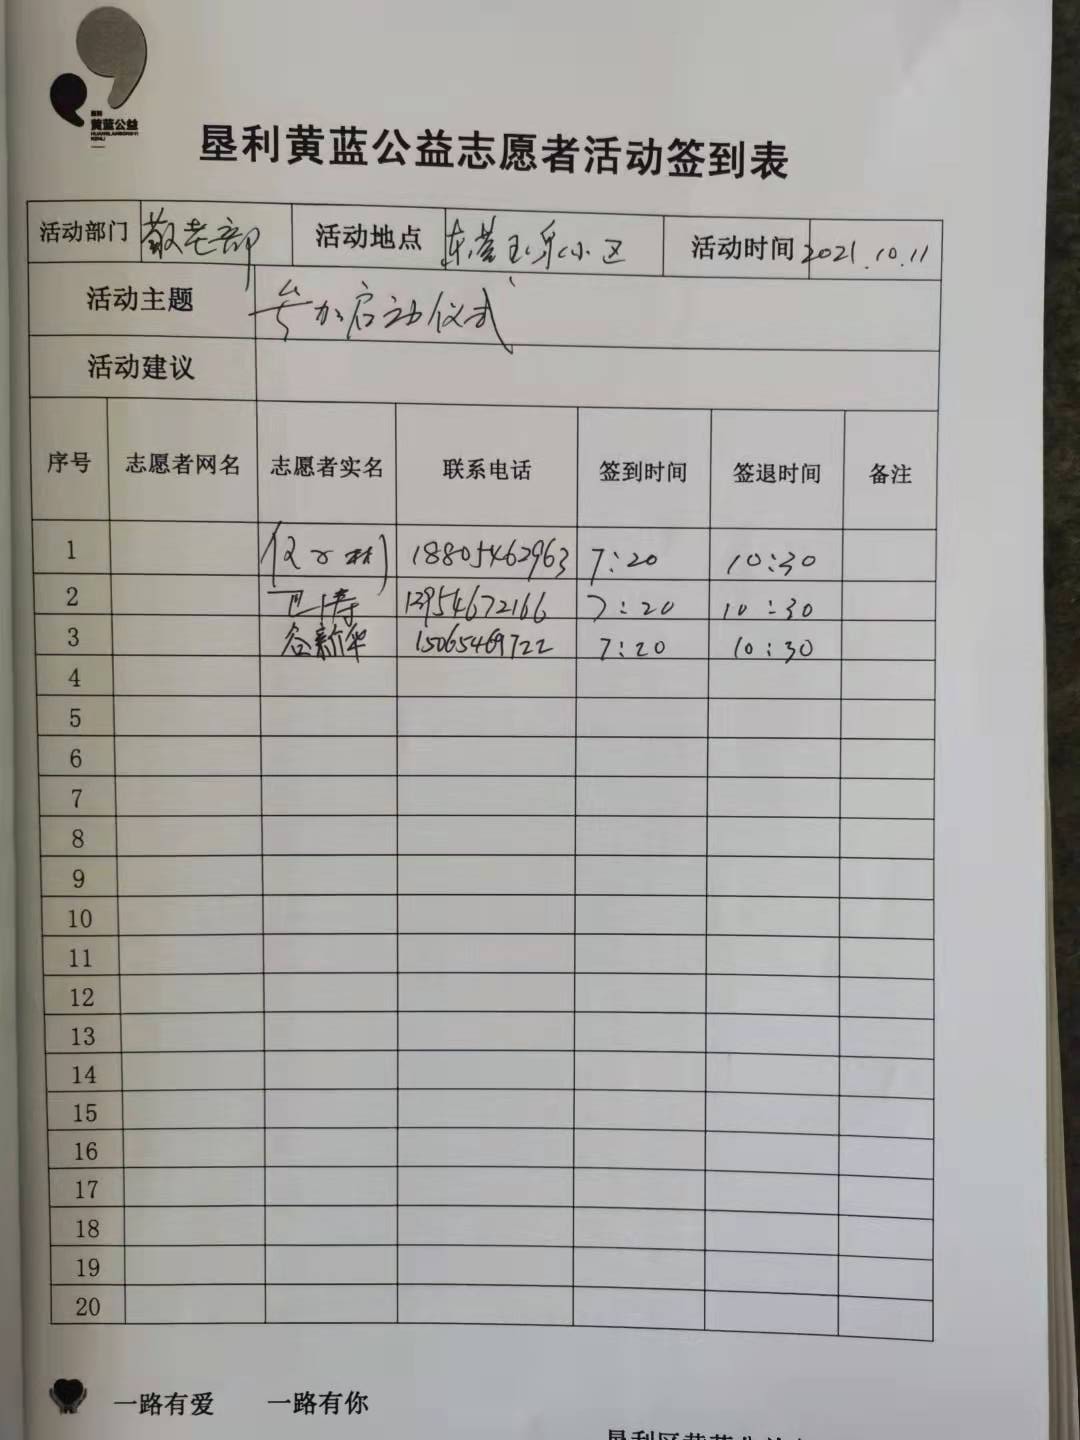 黄蓝公益
垦利黄蓝公益志愿者活动签到表
活动部门 敬老部 活动地点 东营玉乐小区 活动时间 2021.10.11
活动主题 参加启动仪式
活动建议
序号 志愿者网名 志愿者实名 联系电话 签到时间 签退时间 备注
1 18805462963 7:20 10:30
2 13954672166 7:20 10:30
3 谷新华 15065469722 7:20 10:30
4
5
6
7
8
9
10
11
12
13
14
15
16
17
18
19
20
一路有爱 一路有你